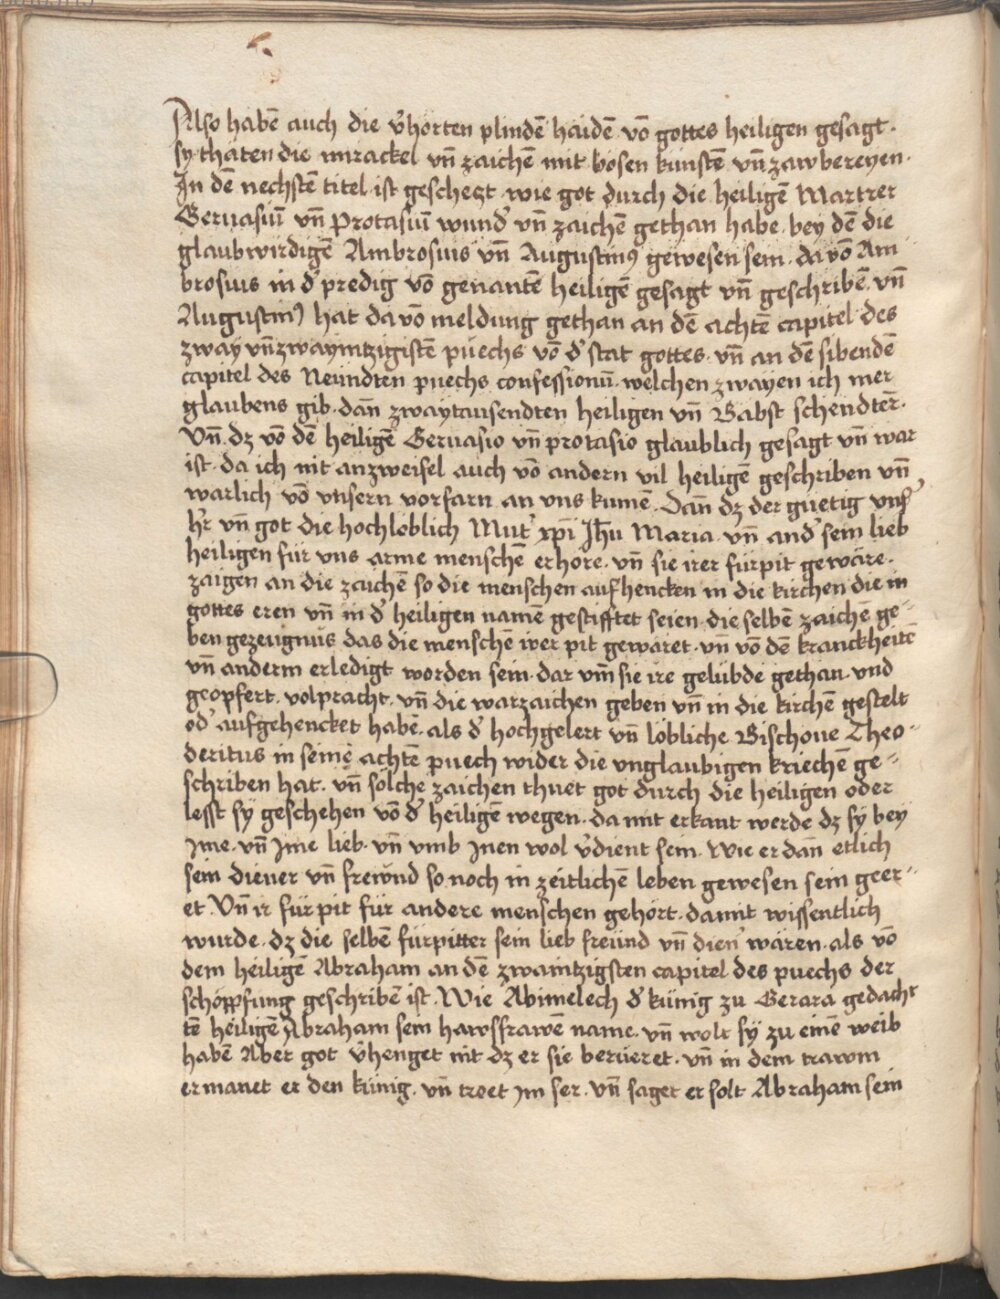 Also habē auch die v̓horten plindē haidē vō gottes heiligen gesagt.
sy thäten die mirackel vn̄ zaichē mit bösen künstē vn̄ zawbereyen.
In dē nechstē titel ist geschetzt wie got durch die heiligē Martrer
Geruasiū vn̄ Protasiū wund̓ vn̄ zaichē gethan habe. bey dē die
glaubwirdigē Ambrosius vn̄ Augustin⁹ gewesen sein. da vō Am
brosius in d̓ predig vō genantē heiligē gesagt vn̄ geschribē vn̄
Augustin⁹ hat da vō meldung gethan an dē achtē capitel des
zway vn̄ zwayntzigistē püechs vō d̓ stat gottes. vn̄ an dē sibendē
capitel des Neündten puechs confessionū. welchen zwayen ich mer
glaubens gib. dan̄ zwaytausendten heiligen vn̄ Babst schendter̄.
Vn̄ dz vō dē heiligē Geruasio vn̄ protasio glaublich gesagt vn̄ war
ist. da ich nit anzweifel auch vō andern vil heiligē geschriben vn̄
warlich vō vnsern vorfarn an vns kumē. Dan̄ dz der guetig vnß̓
h̓r vn̄ got die hochloblich Mut̓ xp̄i Jh̄u Maria vn̄ and̓ sein lieb
heiligen für vns arme menschē erhöre. vn̄ sie irer fürpit gewäre.
zaigen an die zaichē so die menschen aufhencken in die kirchen die in
gottes eren vn̄ in d̓ heiligen namē gestifftet seien. die selben zaichē ge⸗
ben gezeugnus das die menschē irer pit gewäret. vn̄ vō dē kranckheitē
vn̄ anderm erledigt worden sein. dar vm̄ sie ire gelübde gethan. vnd
geopfert. volpracht. vn̄ die warzaichen geben vn̄ in die kirchē gestelt
od̓ aufgehencket habē. als d̓ hochgelert vn̄ löbliche Bischoue Theo⸗
deritus in seinē achtē puech wider die vnglaubigen kriechē ge⸗
schriben hat. vn̄ solche zaichen thuet got durch die heiligen oder
lesst sy geschehen vō d̓ heiligē wegen. da mit erkant werde dz sy bey
Jme. vn̄ Jme lieb. vn̄ vmb Jnen wol v̓dient sein. Wie er dan̄ etlich
sein diener vn̄ frewnd so noch in zeitlichē leben gewesen sein geer⸗
et. Vn̄ ir fürpit für andere menschen gehört. damit wissentlich
wurde. dz die selbē fürpitter sein lieb freünd vn̄ dien̓ wären. als vō
dem heiligē Abraham an dē zwaintzigsten capitel des puechs der
schöpfung geschribē ist. Wie Abimelech d̓ künig zu Gerara gedacht
tē heiligē Abraham sein hawsfrawē name. vn̄ wolt sy zu einē weib
habē Aber got v̓henget nit dz er sie berüeret. vn̄ in dem trawm
ermanet er den künig. vn̄ troet im ser. vn̄ saget er solt Abraham sein